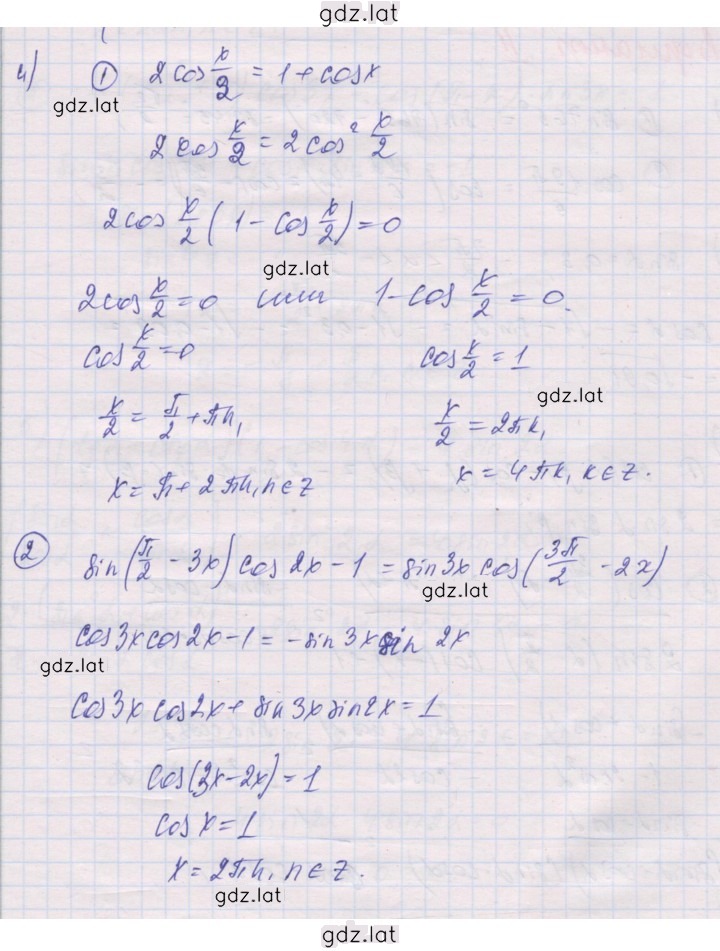 gdz.lat
4) ① 2cos x/2 = 1 + cosx
gdz.lat
2cos x/2 = 2cos² x/2
2cos x/2 (1 - cos x/2) = 0
gdz.lat
2cos x/2 = 0 или 1 - cos x/2 = 0.
cos x/2 = 0 cos x/2 = 1
gdz.lat
x/2 = π/2 + πn, x/2 = 2πk,
x = π + 2πn, n ∈ z x = 4πk, k ∈ z.
② sin(π/2 - 3x) cos 2x - 1 = sin3x cos(3π/2 - 2x)
gdz.lat
cos3x cos2x - 1 = -sin 3x sin 2x
gdz.lat
cos3x cos2x + sin3x sin2x = 1
cos(3x - 2x) = 1
cos x = 1
x = 2πn, n ∈ z.
gdz.lat
gdz.lat